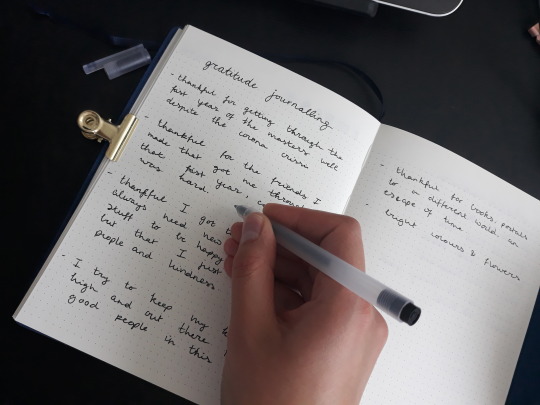 gratitude journalling
- thankful for getting through the
first year of the masters well
despite the corona crisis
- thankful for the friends I
made that got me through
that first year,
was hard.
- thankful I got
always need new
stuff to be happy
but that I just
people and kindness
- I try to keep my
high and out there
good people in this
- thankful for books, portals
to a different world. an
escape of time
- bright colours & flowers